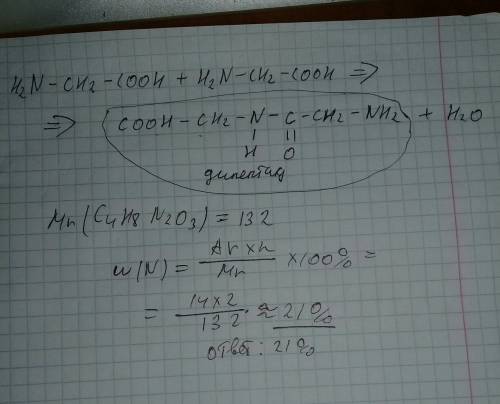 H₂N-CH₂-COOH + H₂N-CH₂-COOH ⇒
⇒ COOH-CH₂-N-C-CH₂-NH₂ + H₂O
| ||
H O
дипептид
Mr(C₄H₈N₂O₃) = 132
w(N) = Ar×n/Mr ×100% =
= 14×2/132 ≈ 21%
ответ: 21%